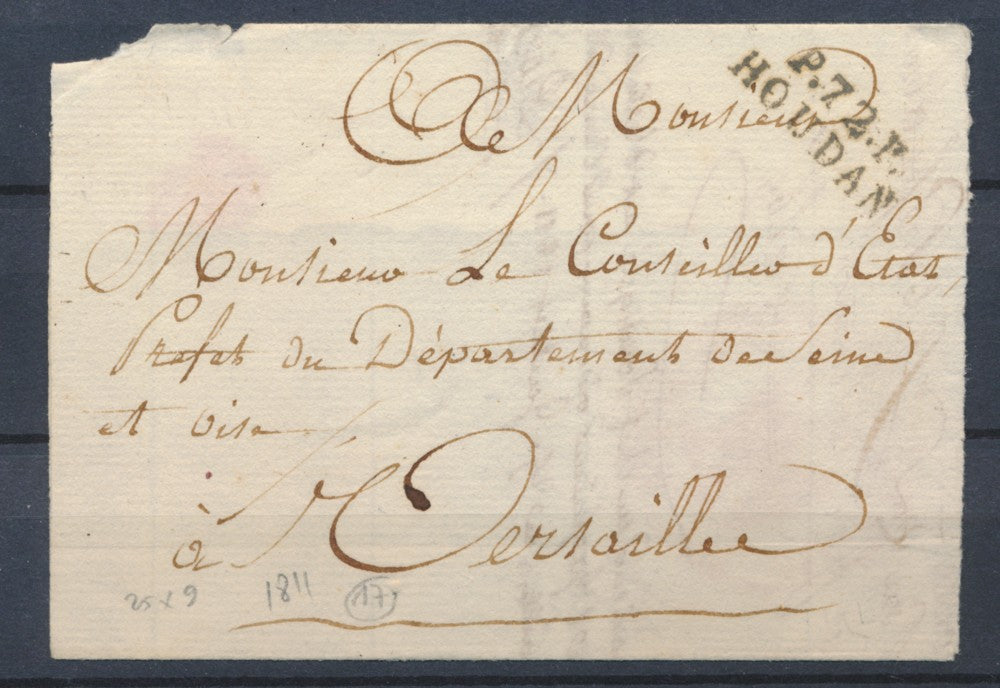 P.72.P.
HOUDAN
A Monsieur
Monsieur Le Conseiller d'Etat,
Prefet du Département de Seine
et oise
à Versailles
25 x 9 1811 17